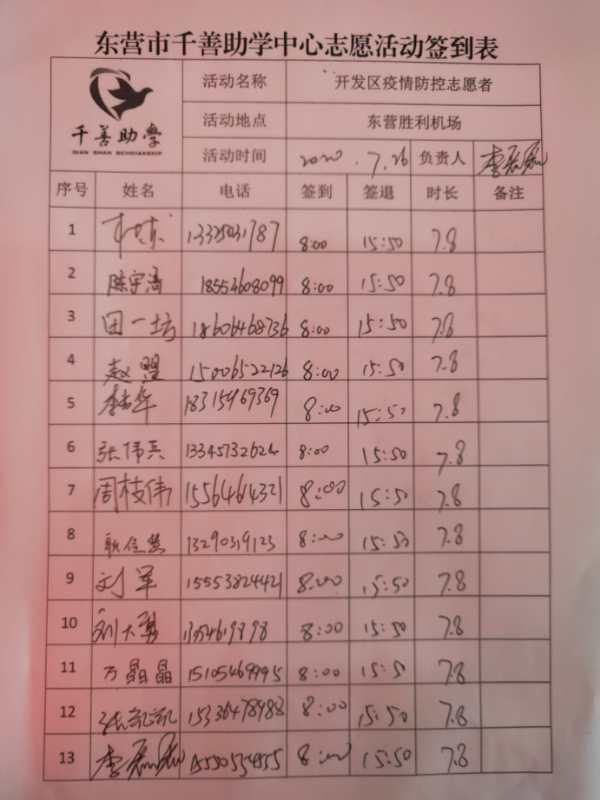 东营市千善助学中心志愿活动签到表
千善助学
QIAN SHAN SCHOLARSHIP
活动名称 开发区疫情防控志愿者
活动地点 东营胜利机场
活动时间 2020.7.26 负责人
序号 姓名 电话 签到 签退 时长 备注
1 13325031787 8:00 15:50 7.8
2 陈宇涵 18553608099 8:00 15:50 7.8
3 田一坊 18606468736 8:00 15:50 7.8
4 赵盟 15006522126 8:00 15:50 7.8
5 18315969369 8:00 15:50 7.8
6 张伟兵 8:00 15:50 7.8
7 周枝伟 15564614321 8:00 15:50 7.8
8 13290319123 8:00 15:50 7.8
9 刘军 15553824421 8:00 15:50 7.8
10 刘大勇 8:00 15:50 7.8
11 万晶晶 8:00 15:50 7.8
12 15336478988 8:00 15:50 7.8
13 8:00 15:50 7.8